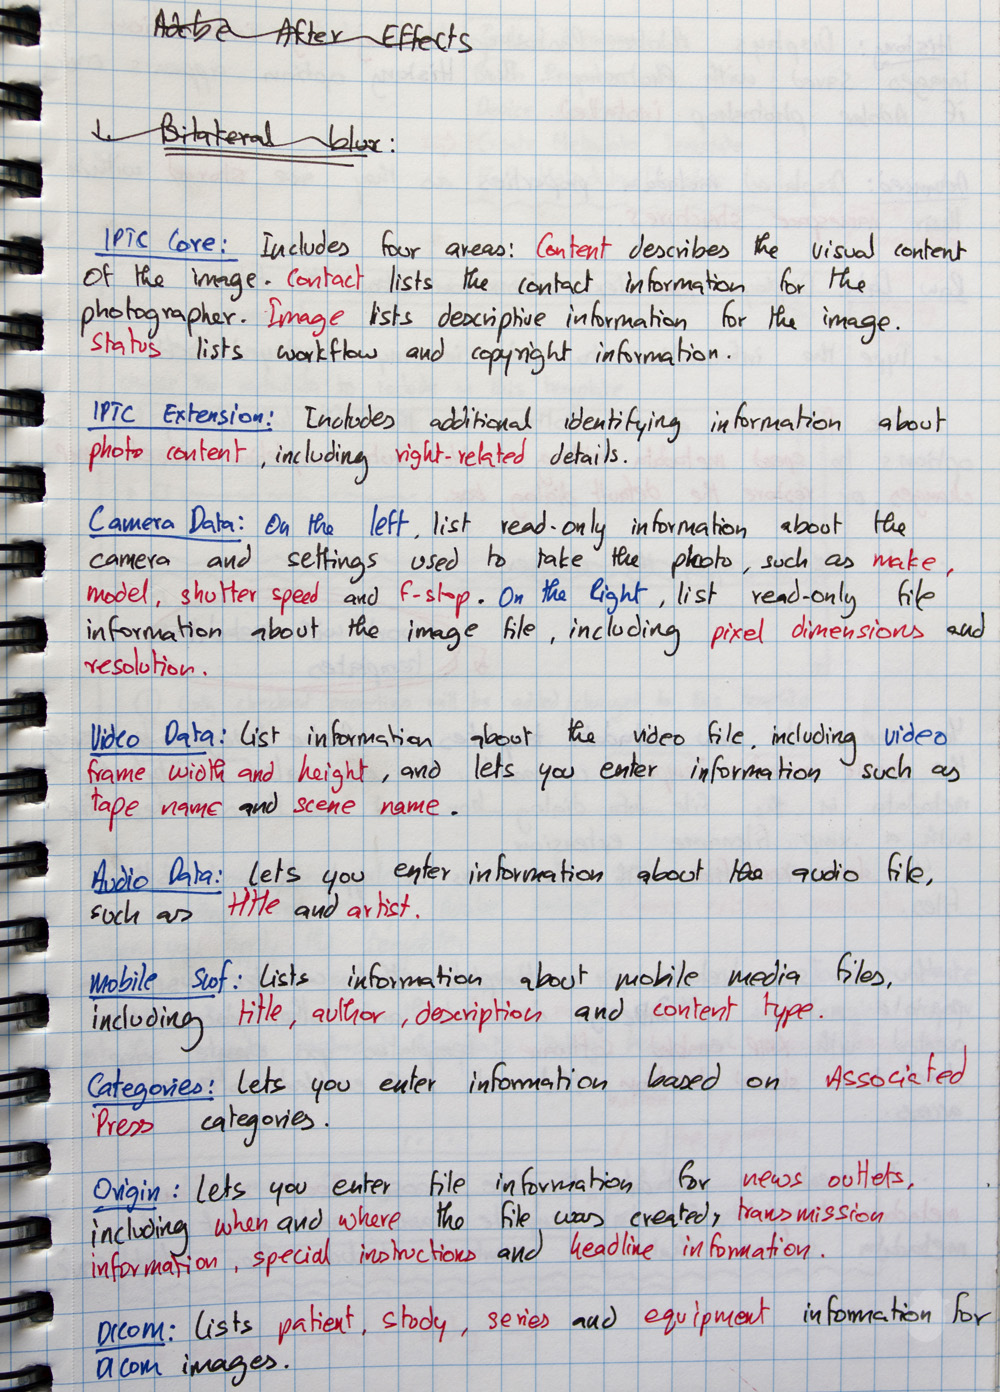 Adobe After Effects
↳ Bilateral blur:
IPTC Core: Includes four areas: Content describes the visual content
Of the image. Contact lists the contact information for the
photographer. Image lists descriptive information for the image.
Status lists workflow and copyright information.
IPTC Extension: Includes additional identifying information about
photo content, including right-related details.
Camera Data: On the left, list read-only information about the
camera and settings used to take the photo, such as make,
model, shutter speed and f-stop. On the Right, list read-only file
information about the image file, including pixel dimensions and
resolution.
Video Data: List information about the video file, including video
frame width and height, and lets you enter information such as
tape name and scene name.
Audio Data: Lets you enter information about the audio file,
such as title and artist.
Mobile Swf: Lists information about mobile media files,
including title, author, description and content type.
Categories: Lets you enter information based on Associated
Press categories.
Origin: Lets you enter file information for news outlets,
including when and where the file was created, transmission
information, special instructions and headline information.
DICOM: Lists patient, study, series and equipment information for
DICOM images.